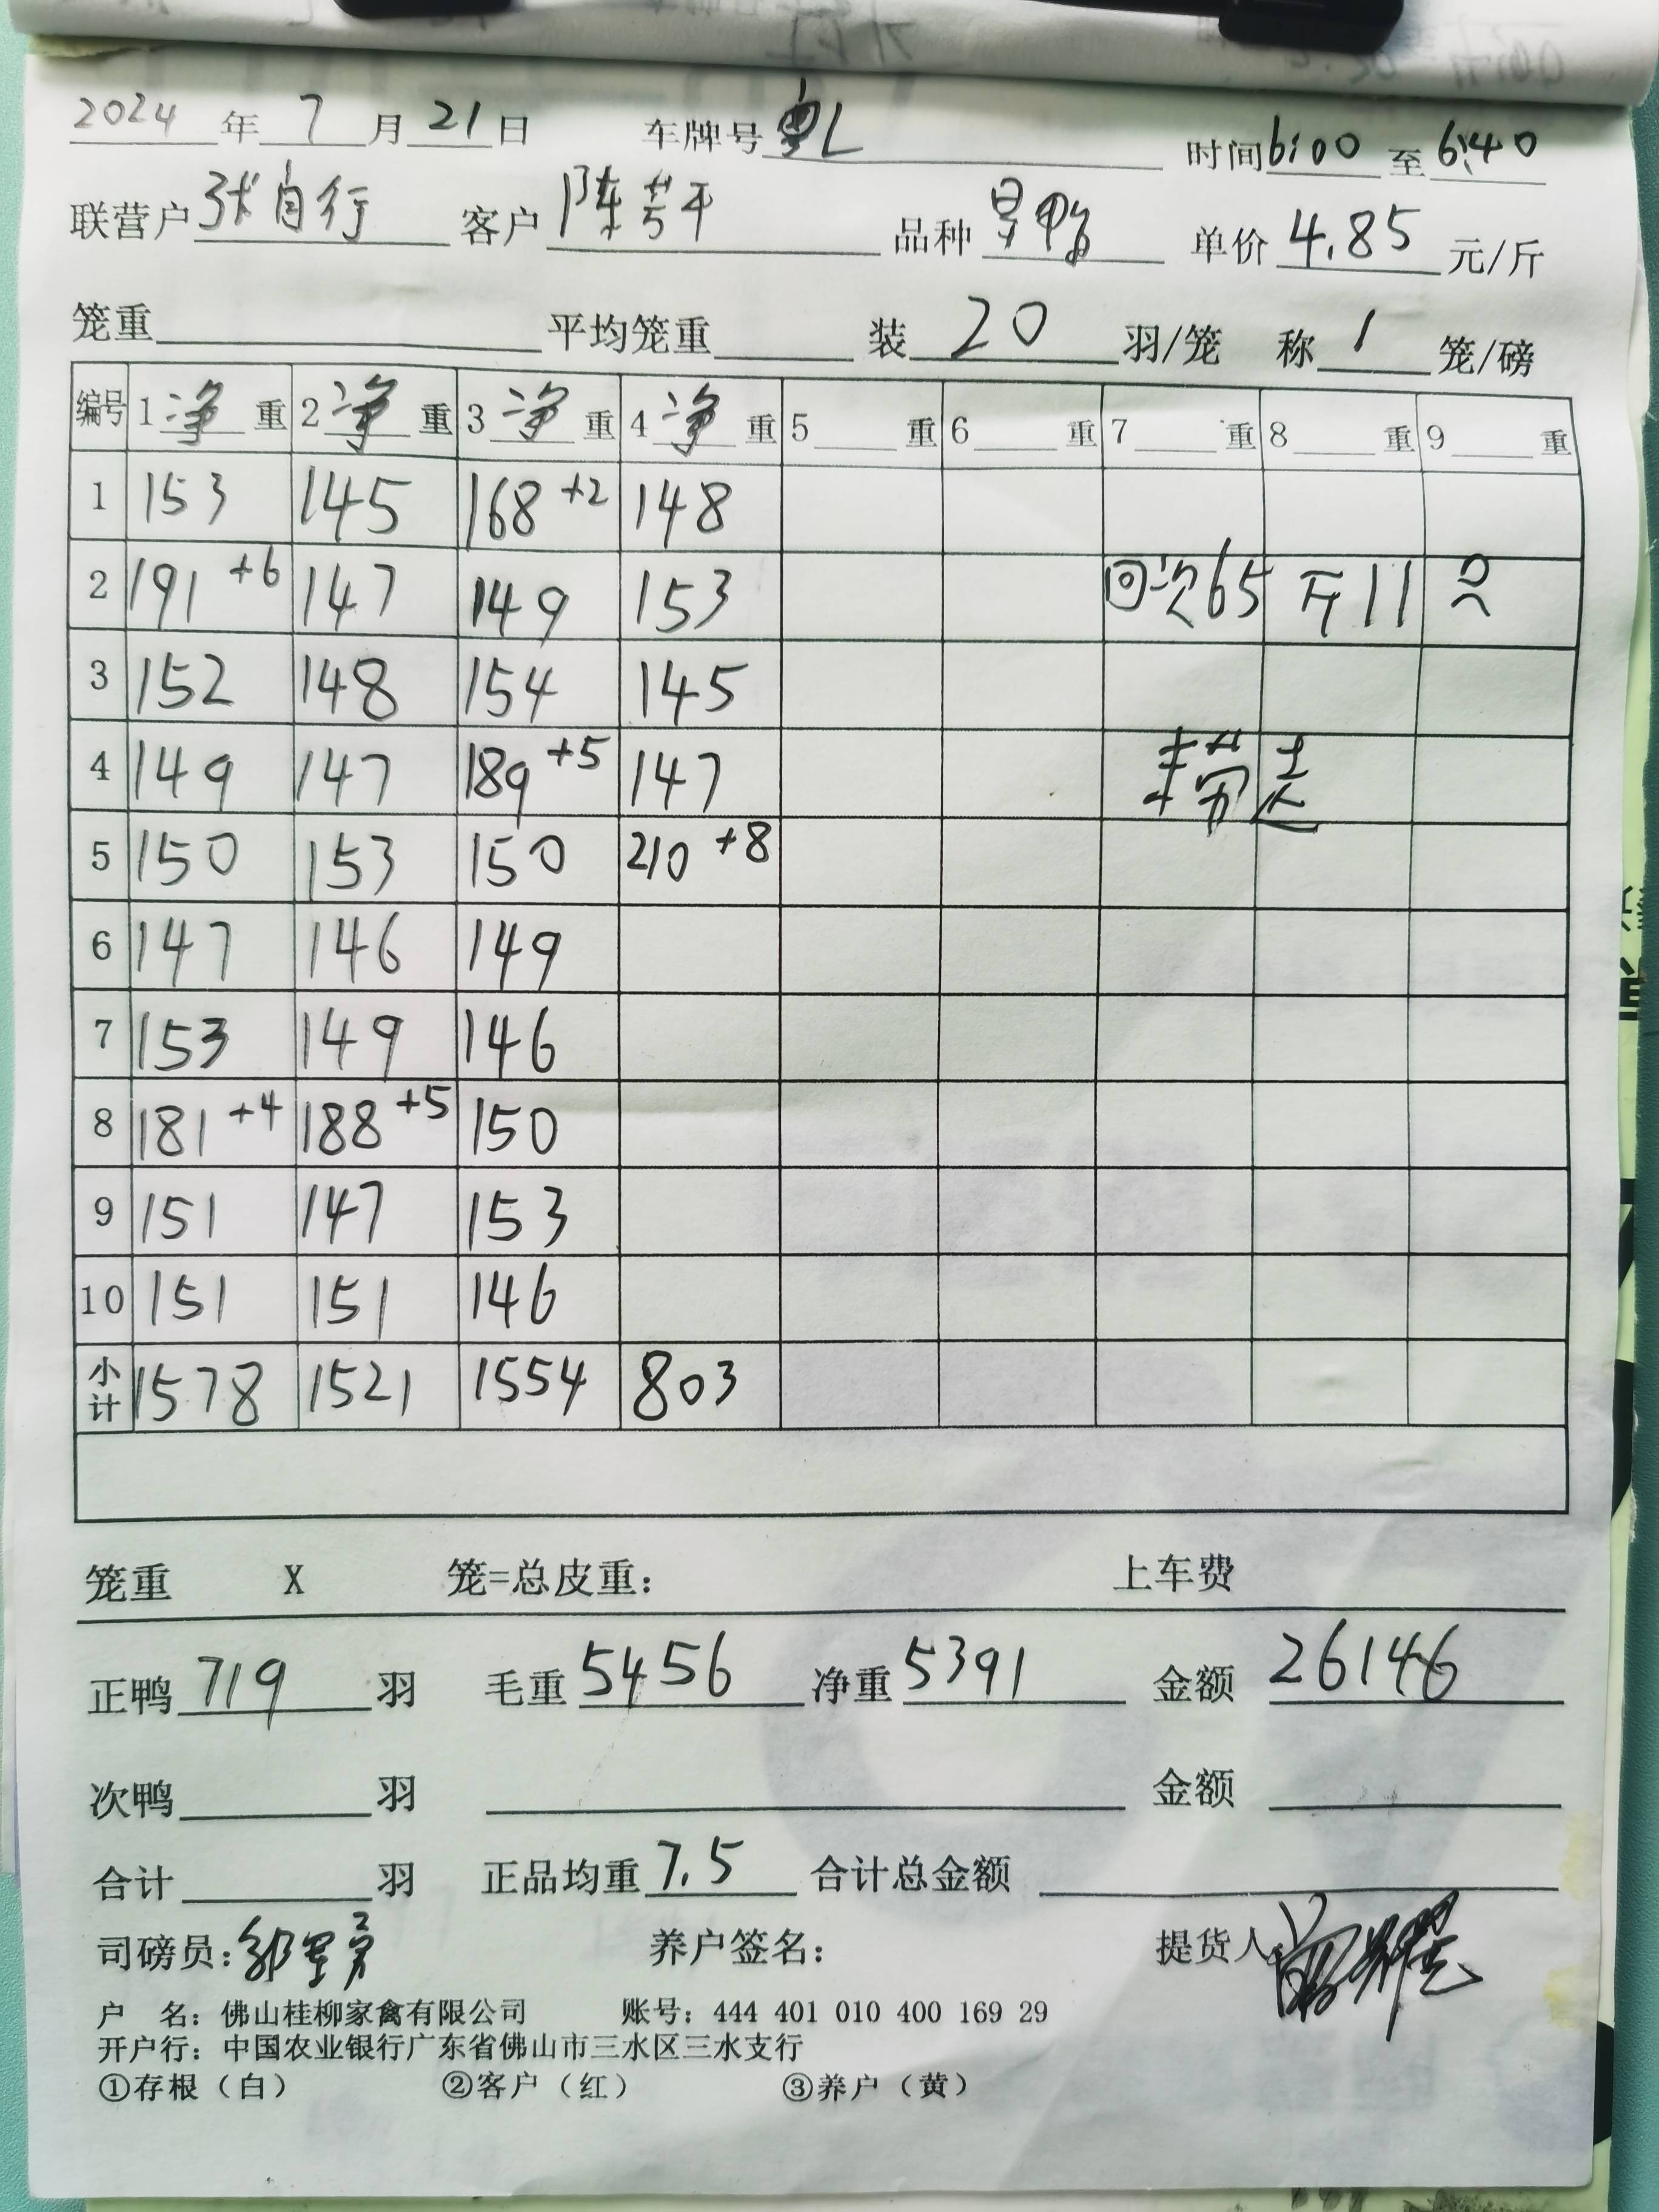 2024 年 7 月 21 日 车牌号 粤L 时间 6:00 至 6:40
联营户 张自行 客户 陈芳干 品种 单价 4.85 元/斤
笼重 平均笼重 装 20 羽/笼 称 1 笼/磅
编号 1 净 重 2 净 重 3 净 重 4 净 重 5 重 6 重 7 重 8 重 9 重
1 153 145 168+2 148
2 191+6 147 149 153 回次65斤11只
3 152 148 154 145
4 149 147 189+5 147
5 150 153 150 210+8
6 147 146 149
7 153 149 146
8 181+4 188+5 150
9 151 147 153
10 151 151 146
小计 1578 1521 1554 803
笼重 X 笼=总皮重: 上车费
正鸭 719 羽 毛重 5456 净重 5391 金额 26146
次鸭 羽 金额
合计 羽 正品均重 7.5 合计总金额
司磅员: 养户签名: 提货人:
户 名: 佛山桂柳家禽有限公司 账号: 444 401 010 400 169 29
开户行: 中国农业银行广东省佛山市三水区三水支行
①存根(白) ②客户(红) ③养户(黄)